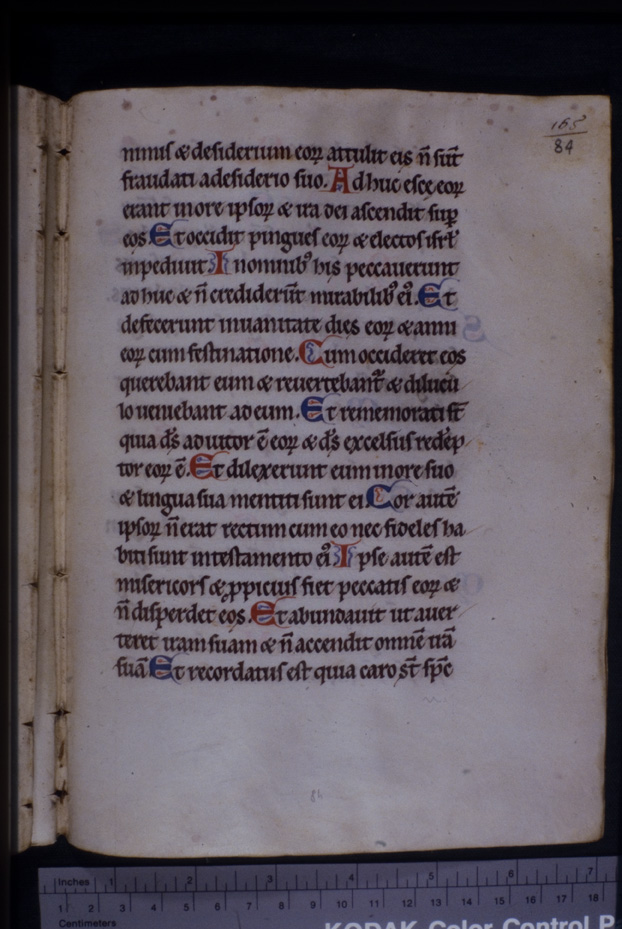 165
84
nimis & desiderium eoꝝ attulit eis ñ sūt
fraudati adesiderio suo. Adhuc esce eoꝝ
erant inore ipsoꝝ & ira dei ascendit suꝑ
eos Et occidit pingues eoꝝ & electos isrł
inpediuit. In nominibꝰ his peccauerunt
adhuc & ñ crediderūt mirabilibꝰ eiꝰ. Et
defecerunt inuanitate dies eoꝝ & anni
eoꝝ cum festinatione. Cum occideret eos
querebant eum & reuertebant᷑ & dilucu
lo ueniebant ad eum. Et rememorati st̄
quia ds̄ adiutor ē eoꝝ & ds̄ excelsus redēp
tor eoꝝ ē. Et dilexerunt eum inore suo
& lingua sua mentiti sunt ei Cor autē
ipsoꝝ ñ erat rectum cum eo nec fideles ha
biti sunt intestamento eiꝰ Ipse autē est
misericors & ꝓpicius fiet peccatis eoꝝ &
ñ disperdet eos. Et abundauit ut auer
teret iram suam & ñ accendit omnē irā
suā Et recordatus est quia caro st̄ sp̄c
84
Inches 1 2 3 4 5 6 7
1 2 3 4 5 6 7 8 9 10 11 12 13 14 15 16 17 18
Centimeters
KODAK Color Control P